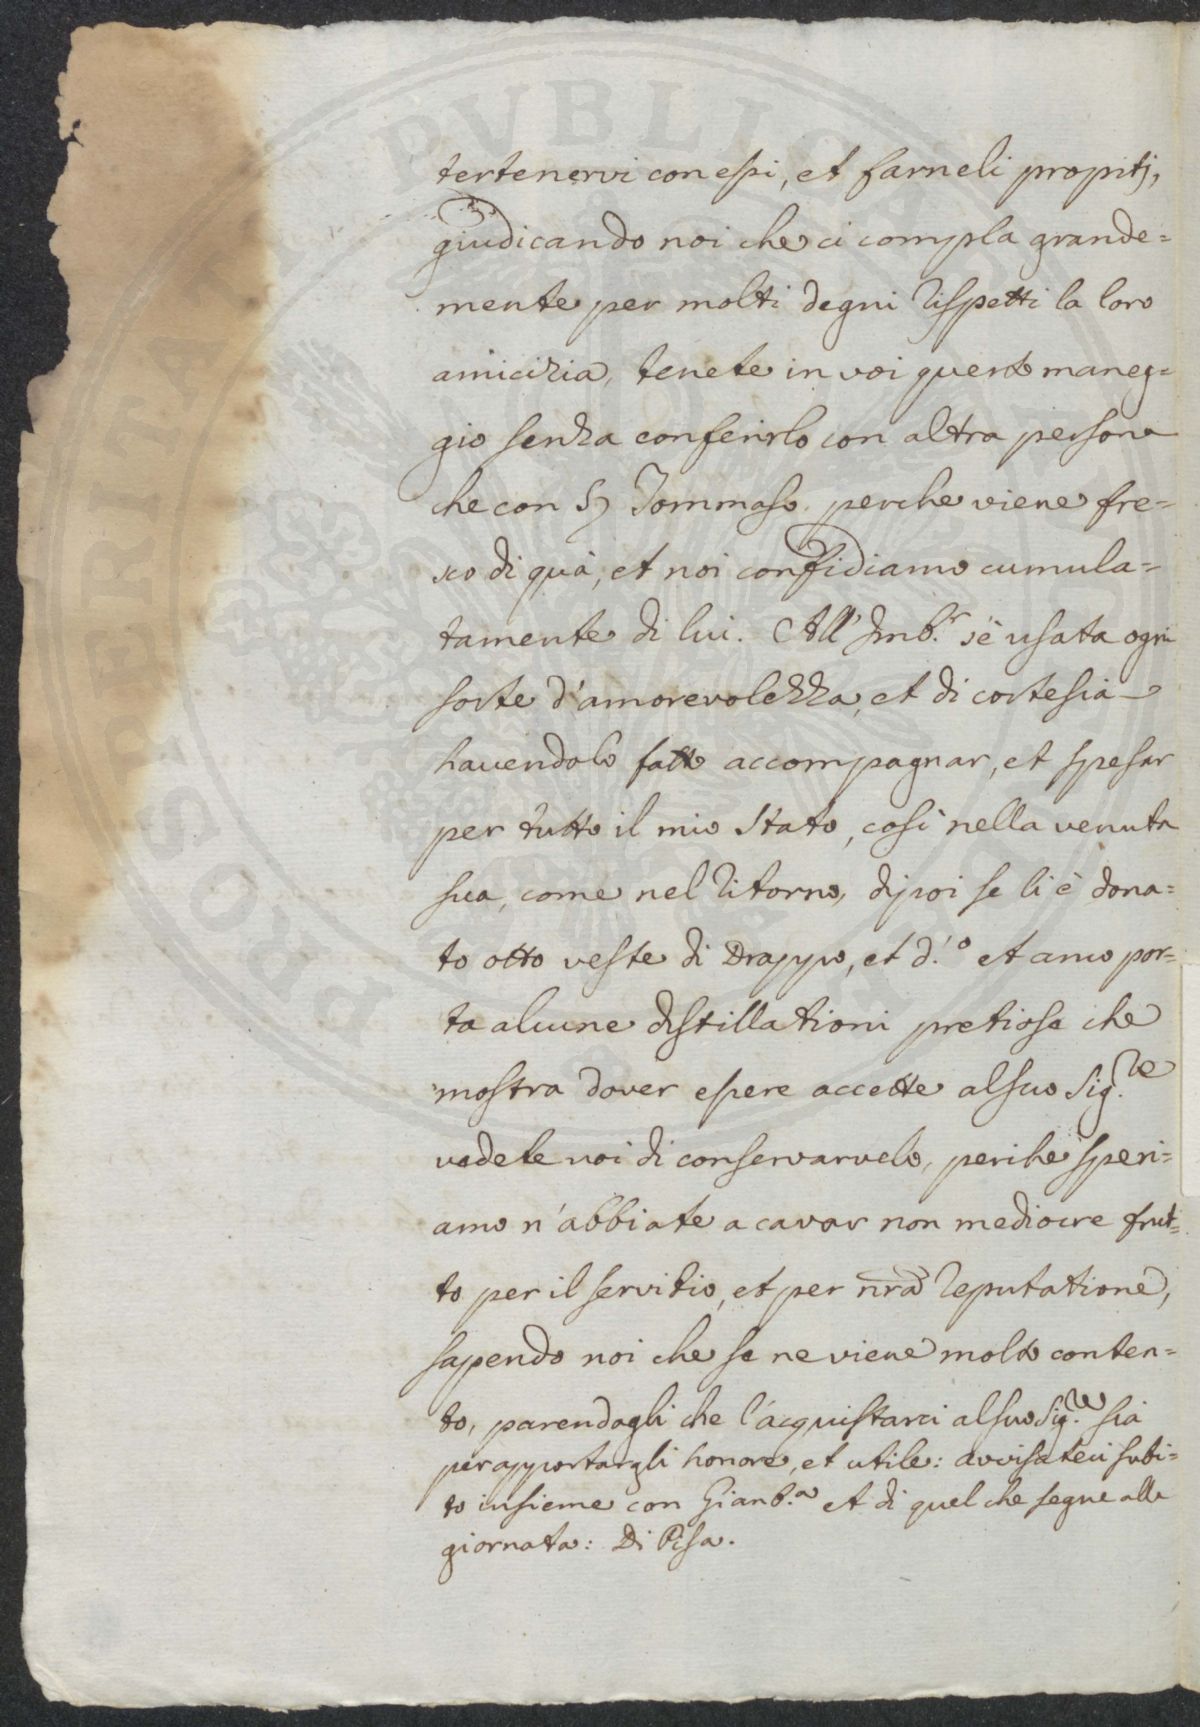 tertenervi con essi, et farneli propitij,
giudicando noi che ci compla grande=
mente per molti degni rispetti la loro
amicizia, tenete in voi questo maneg=
gio senza conferirlo con altra persona
che con Sr Tommaso. perche viene fre=
sco di quà, et noi confidiamo cumula=
tamente di lui. All' Imb.r s'è usata ogni
sorte d'amorevolezza, et di cortesia
havendolo fatto accompagnar, et spesar
per tutto il mio stato, così nella venuta
sua, come nel ritorno, dipoi se li è dona=
to otto veste di Drappo, et d'.o et anco por=
ta alcune distillationi pretiose che
mostra dover essere accette al suo Sig.re
vedete voi di conservarvelo, perche speri=
amo n'abbiate a cavar non mediocre frut=
to per il servitio, et per nra reputatione,
sapendo noi che se ne viene molto conten=
to, parendogli che l'acquistarci al suo Sig.re sia
per apportargli honore, et utile: avvisateci subi=
to insieme con Gianb.a et di quel che segue alla
giornata: Di Pisa.
PVBLIC